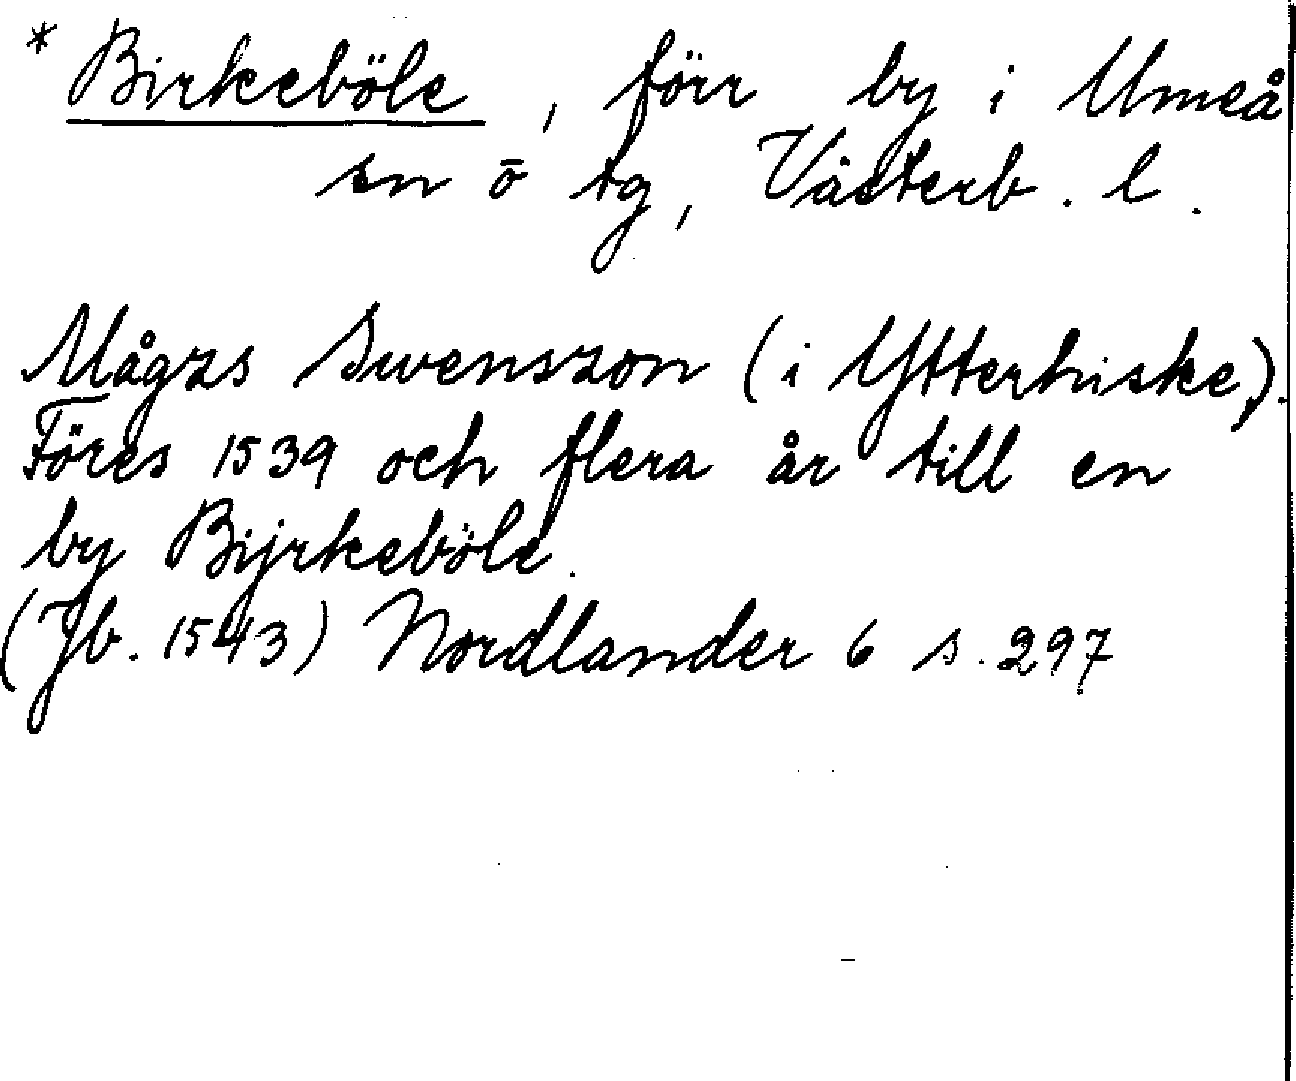 * Birkeböle, förr by i Umeå
sn ō tg, Västerb. l.
Mågzs Swenszon (i Ytterhiske).
Föres 1539 och flera år till en
by Bijrkeböle.
(Jb. 1543) Nordlander 6 s. 297